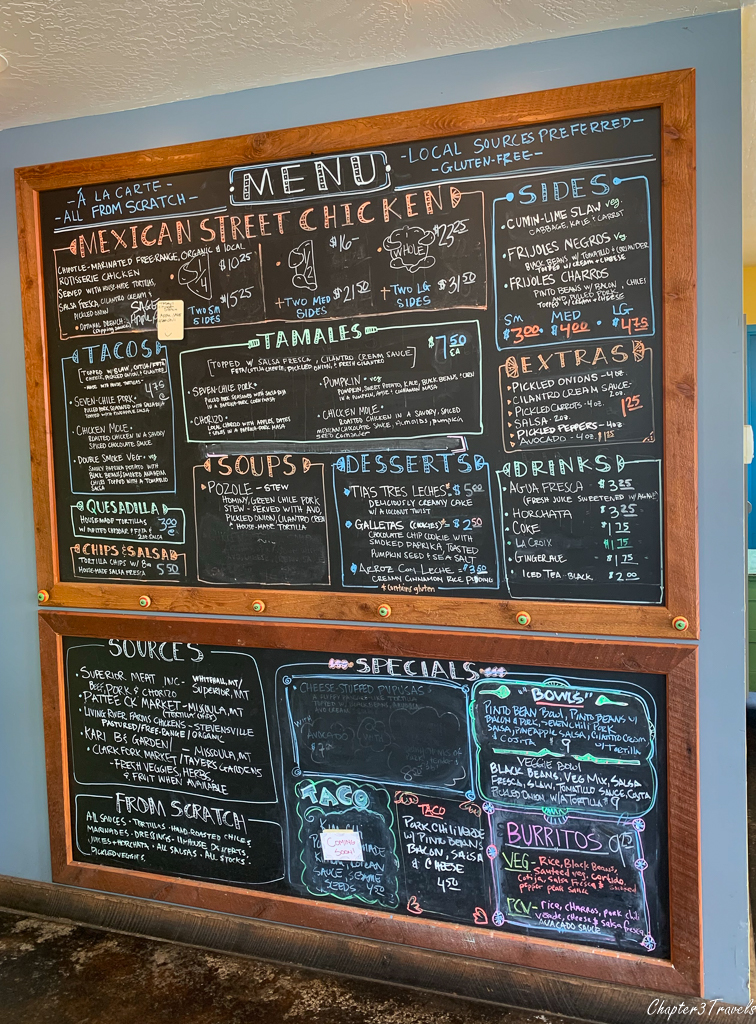 - À LA CARTE -
- ALL FROM SCRATCH -
MENU
- LOCAL SOURCES PREFERRED -
- GLUTEN-FREE -
MEXICAN STREET CHICKEN
CHIPOTLE-MARINATED FREE-RANGE, ORGANIC & LOCAL
ROTISSERIE CHICKEN
SERVED WITH HOUSE-MADE TORTILLAS,
SALSA FRESCA, CILANTRO CREAM &
PICKLED ONION
1/4
$10.25
$15.25
TWO SM
SIDES
1/2
$16-
+TWO MED $21.50
SIDES
WHOLE
$23.25
+ TWO LG $31.50
SIDES
SIDES
• CUMIN-LIME SLAW veg.
CABBAGE, KALE & CARROT
• FRIJOLES NEGROS veg
BLACK BEANS W/ TOMATILLO & CORIANDER
TOPPED W/ CREAM & CHEESE
• FRIJOLES CHARROS
PINTO BEANS W/ BACON, CHILES
AND PULLED PORK
TOPPED W/ CREAM & CHEESE
SM MED LG
$3.00 $4.00 $4.75
TACOS
• SEVEN-CHILE PORK
4.75
PULLED PORK SEASONED WITH SALSA ROJA
TOPPED WITH PINEAPPLE SALSA
• CHICKEN MOLE
ROASTED CHICKEN IN A SAVORY
SPICED CHOCOLATE SAUCE
• DOUBLE SMOKE VEG
TAMALES
$7.50
EA
[TOPPED W/ SALSA FRESCA, CILANTRO CREAM SAUCE]
FETA/COTIJA CHEESE, PICKLED ONION, & FRESH CILANTRO
• SEVEN-CHILE PORK
PULLED PORK SEASONED WITH SALSA ROJA
IN A PAPRIKA-PORK CORN MASA
• CHORIZO
LOCAL CHORIZO WITH APPLES, DATES
IN A PAPRIKA-PORK MASA
• PUMPKIN - veg
PUMPKIN, SWEET POTATO, KALE, BLACK BEANS & CORN
IN A PUMPKIN, & CINNAMON MASA
• CHICKEN MOLE
ROASTED CHICKEN IN A SAVORY, SPICED
MEXICAN CHOCOLATE SAUCE
EXTRAS
• PICKLED ONIONS - 4 oz.
• CILANTRO CREAM SAUCE - 2 oz.
• PICKLED CARROTS - 4 oz.
• SALSA - 2 oz.
• PICKLED PEPPERS - 4 oz.
1.25
AVOCADO - 4 oz. $1.75
QUESADILLA
HOUSE-MADE TORTILLAS 3.00
CHIPS & SALSA
TORTILLA CHIPS W/ 8oz
HOUSE-MADE SALSA FRESCA 5.50
SOUPS
• POZOLE - STEW
HOMINY, GREEN CHILE PORK
STEW - SERVED WITH AVO,
PICKLED ONION, CILANTRO CREMA
& HOUSE-MADE TORTILLA
DESSERTS
TIA'S TRES LECHES $5.00
DELICIOUSLY CREAMY CAKE
W/ A COCONUT TWIST
GALLETAS (COOKIES) $2.50
CHOCOLATE CHIP COOKIE WITH
SMOKED PAPRIKA, TOASTED
PUMPKIN SEED & SEA SALT
ARROZ CON LECHE - $3.50
CREAMY CINNAMON RICE PUDDING
* contains gluten
DRINKS
• AGUA FRESCA $3.25
(FRESH JUICE SWEETENED W/ AGAVE)
• HORCHATA $3.25
• COKE $1.75
• LA CROIX $1.75
• GINGER ALE $1.75
• ICED TEA - BLACK $2.00
SOURCES
• SUPERIOR MEAT INC - WHITEHALL, MT
BEEF, PORK & CHORIZO SUPERIOR, MT
• PATTEE CK MARKET - MISSOULA, MT
• LIVING RIVER FARMS CHICKENS - STEVENSVILLE
PASTURED/FREE-RANGE/ORGANIC
• KARI B's GARDEN - MISSOULA, MT
• CLARK FORK MARKET / TAYERS GARDENS
- FRESH VEGGIES, HERBS,
& FRUIT WHEN AVAILABLE
FROM SCRATCH
ALL SAUCES • TORTILLAS • HAND-ROASTED CHILES
MARINADES • DRESSINGS • IN-HOUSE DESSERTS
JUICES • HORCHATA • ALL SALSAS • ALL STOCKS •
PICKLED VEGGIES •
SPECIALS
• CHEESE-STUFFED PUPUSAS
AVOCADO
TACO
COMING
SOON!
SAUCE, SESAME
SEEDS 4.50
TACO
PORK CHILI VERDE
W/ PINTO BEANS
BACON, SALSA
& CHEESE
4.50
"BOWLS"
PINTO BEAN BOWL, PINTO BEANS W/
BACON & PORK, SEVEN CHILI PORK
SALSA, PINEAPPLE SALSA, CILANTRO CREAM
& COJITA $9 W/ TORTILLA
VEGGIE BOWL
BLACK BEANS, VEG MIX, SALSA
FRESCA, SLAW, TOMATILLO SAUCE, COTIJA
PICKLED ONION W/ A TORTILLA $9
BURRITOS
VEG - Rice, Black Beans,
Sauteed veg, Cortido,
Cotija, Salsa Fresca &
pepper pear sauce
PCV - rice, charros, pork chili
verde, cheese & salsa fresca,
AVACADO SAUCE
Chapter3Travels